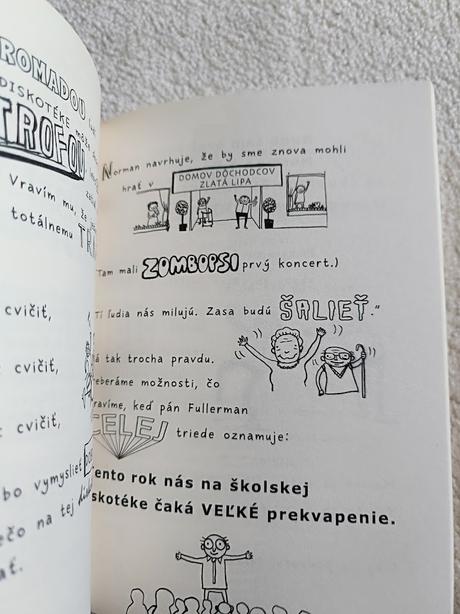 ROMADOU
DISKOTÉKE
TROFOU
Vravím mu, že
totálnemu
cvičiť,
cvičiť,
cvičiť,
vymyslieť
na tej
Norman navrhuje, že by sme znova mohli
hrať v
DOMOV DÔCHODCOV
ZLATÁ LIPA
Tam mali ZOMBOPSI prvý koncert.)
Tí ľudia nás milujú. Zasa budú ŠALIEŤ.“
á tak trocha pravdu.
eberáme možnosti, čo
ravíme, keď pán Fullerman
CELEJ triede oznamuje:
ento rok nás na školskej
skotéke čaká VEĽKÉ prekvapenie.